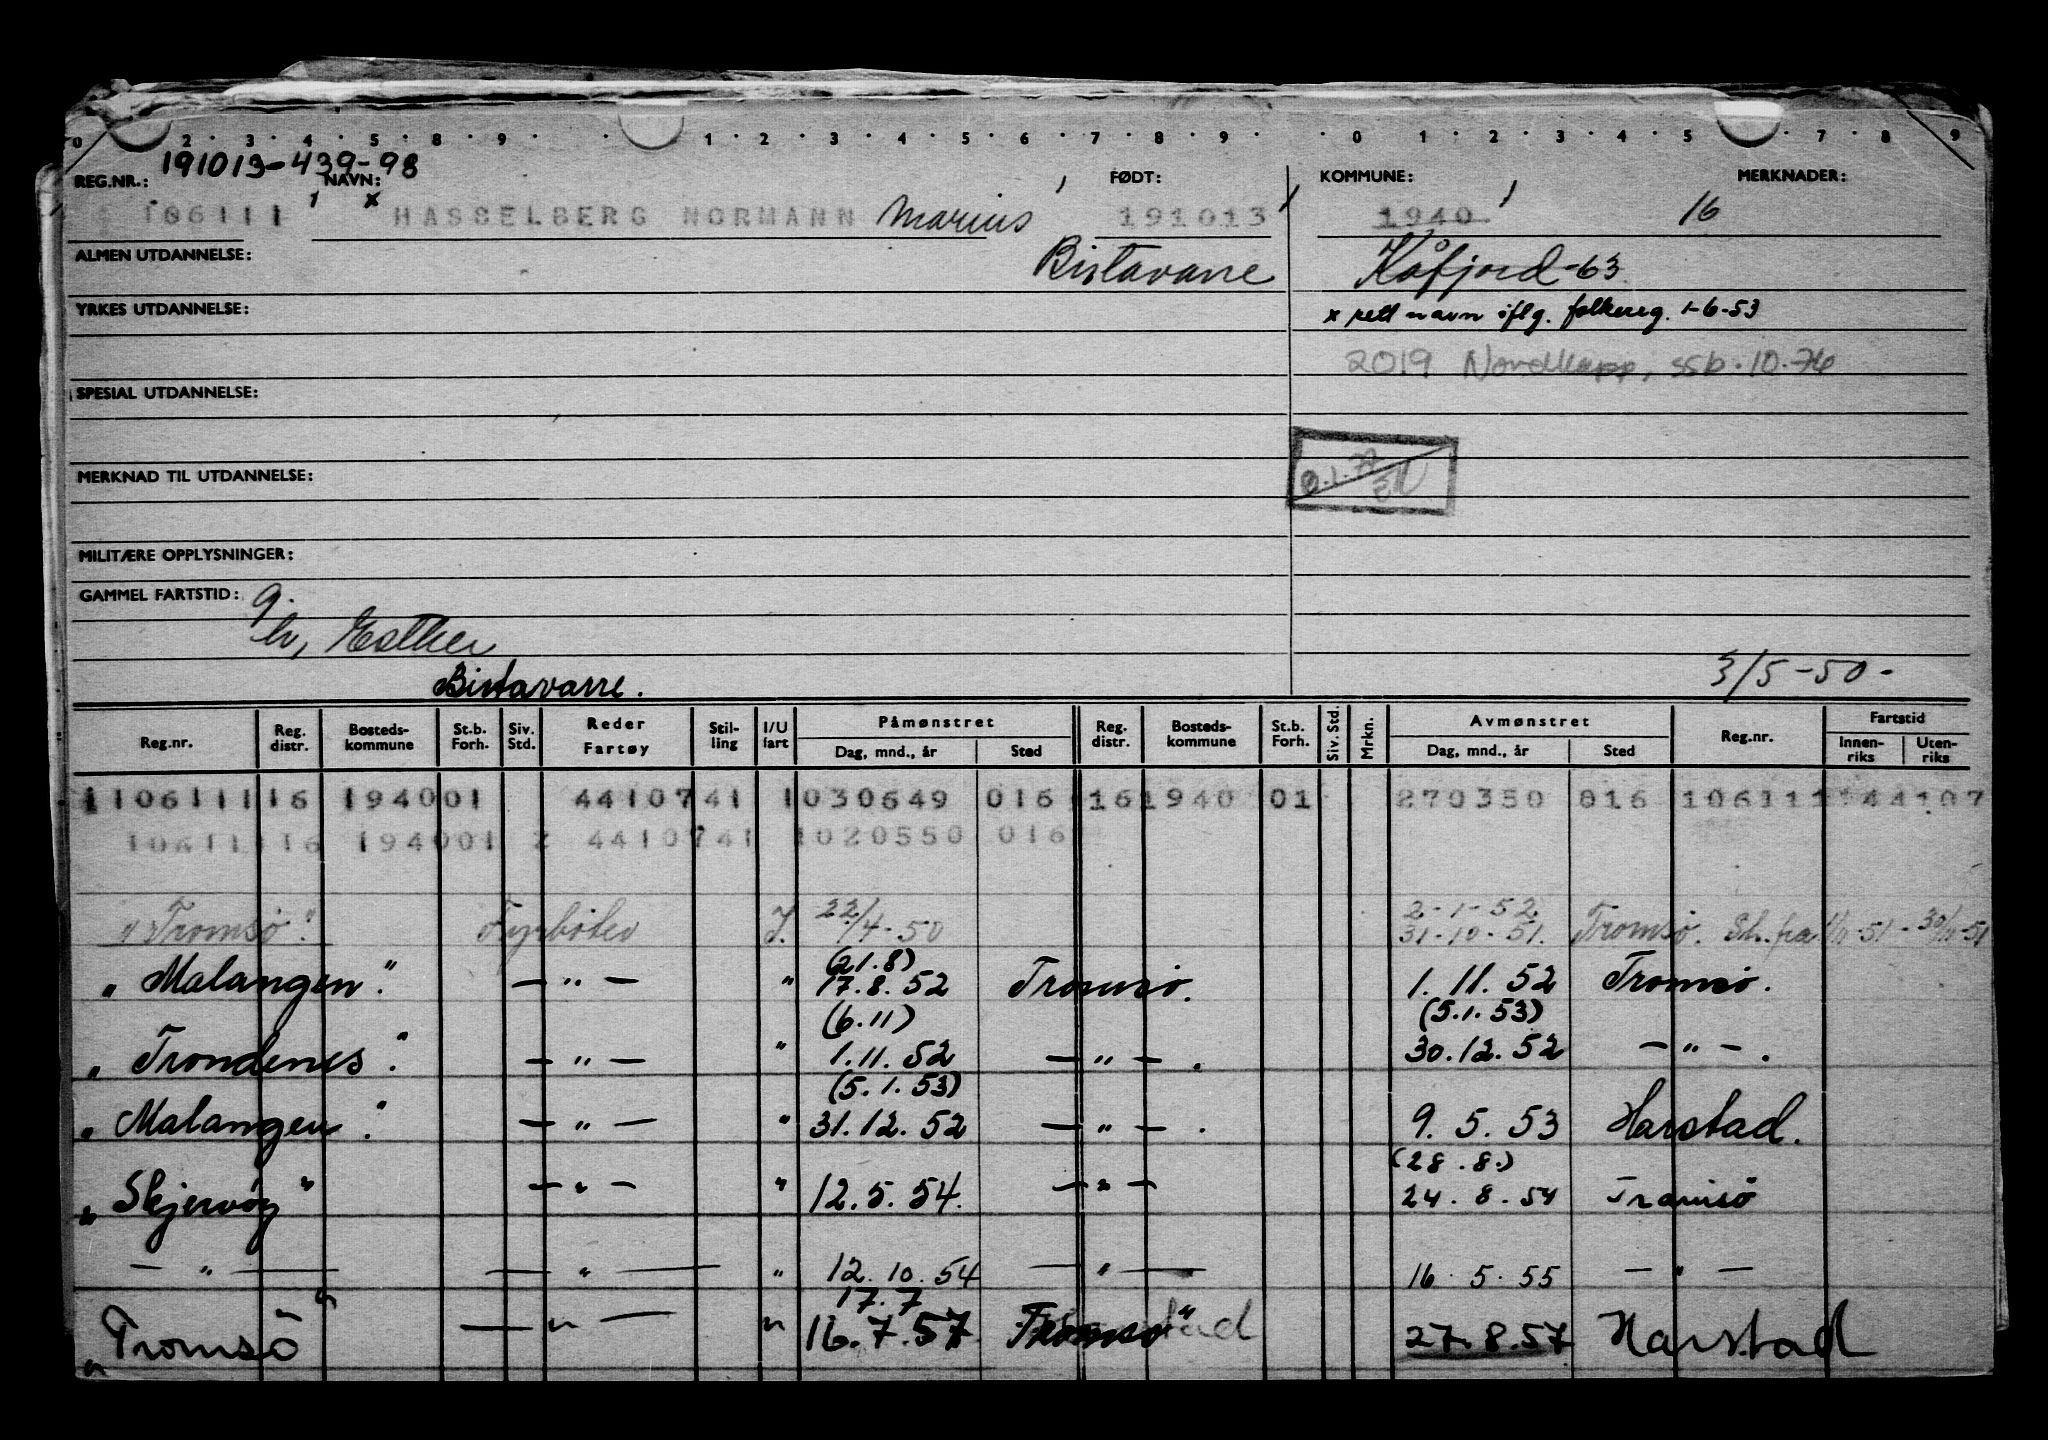 0 2 · 3 · 4 · 5 · 8 · 9 · · · 1 · 2 · 3 · 4 · 5 · 6 · 7 · 8 · 9 · · 0 · 1 · 2 · 3 · 4 · 5 · 7 · 8 · 9
191013-439-98
REG.NR.: NAVN: FØDT: KOMMUNE: MERKNADER:
106111 1 x HASSELBERG NORMANN Marius 191013 1940 16
ALMEN UTDANNELSE: Birtavarre Kåfjord-63
YRKES UTDANNELSE: x rett navn iflg. folkereg. 1-6-53
2019 Nordkapp, ssb. 10.76
SPESIAL UTDANNELSE:
MERKNAD TIL UTDANNELSE:
MILITÆRE OPPLYSNINGER:
GAMMEL FARTSTID: g.
h, Esther
Birtavarre. 3/5-50-
Reg.nr. Reg. distr. Bosteds-kommune St.b. Forh. Siv. Std. Reder Fartøy Stil-ling I/U fart Påmønstret Dag, mnd., år Sted Reg. distr. Bosteds-kommune St.b. Forh. Siv. Std. Mrkn. Avmønstret Dag, mnd., år Sted Reg.nr. Fartstid Innen-riks Uten-riks
1 106111 16 1940 01 4410741 1 030649 016 16 1940 01 270350 016 106111 144107
106111 16 1940 01 2 4410741 1 020550 016
"Tromsø". Fyrbøter I. 22/4-50 2-1-52 31-10-51. Tromsø. Sh. fra 1/11-51 - 30/11-51
"Malangen". — " — " (21.8) 17.8.52 Tromsø. 1.11.52 Tromsø.
"Trondenes". — " — " (6.11) 1.11.52 — " — . (5.1.53) 30.12.52 — " — .
"Malangen". — " — " (5.1.53) 31.12.52 — " — . 9.5.53 Harstad.
"Skjervøy" — " — " 12.5.54. — " — (28.8.) 24.8.54 Tromsø
— " — — " — " 12.10.54 — " — 16.5.55 — " —
"Tromsø" — " — " 17.7 16.7.57 Tromsø 27.8.57 Harstad